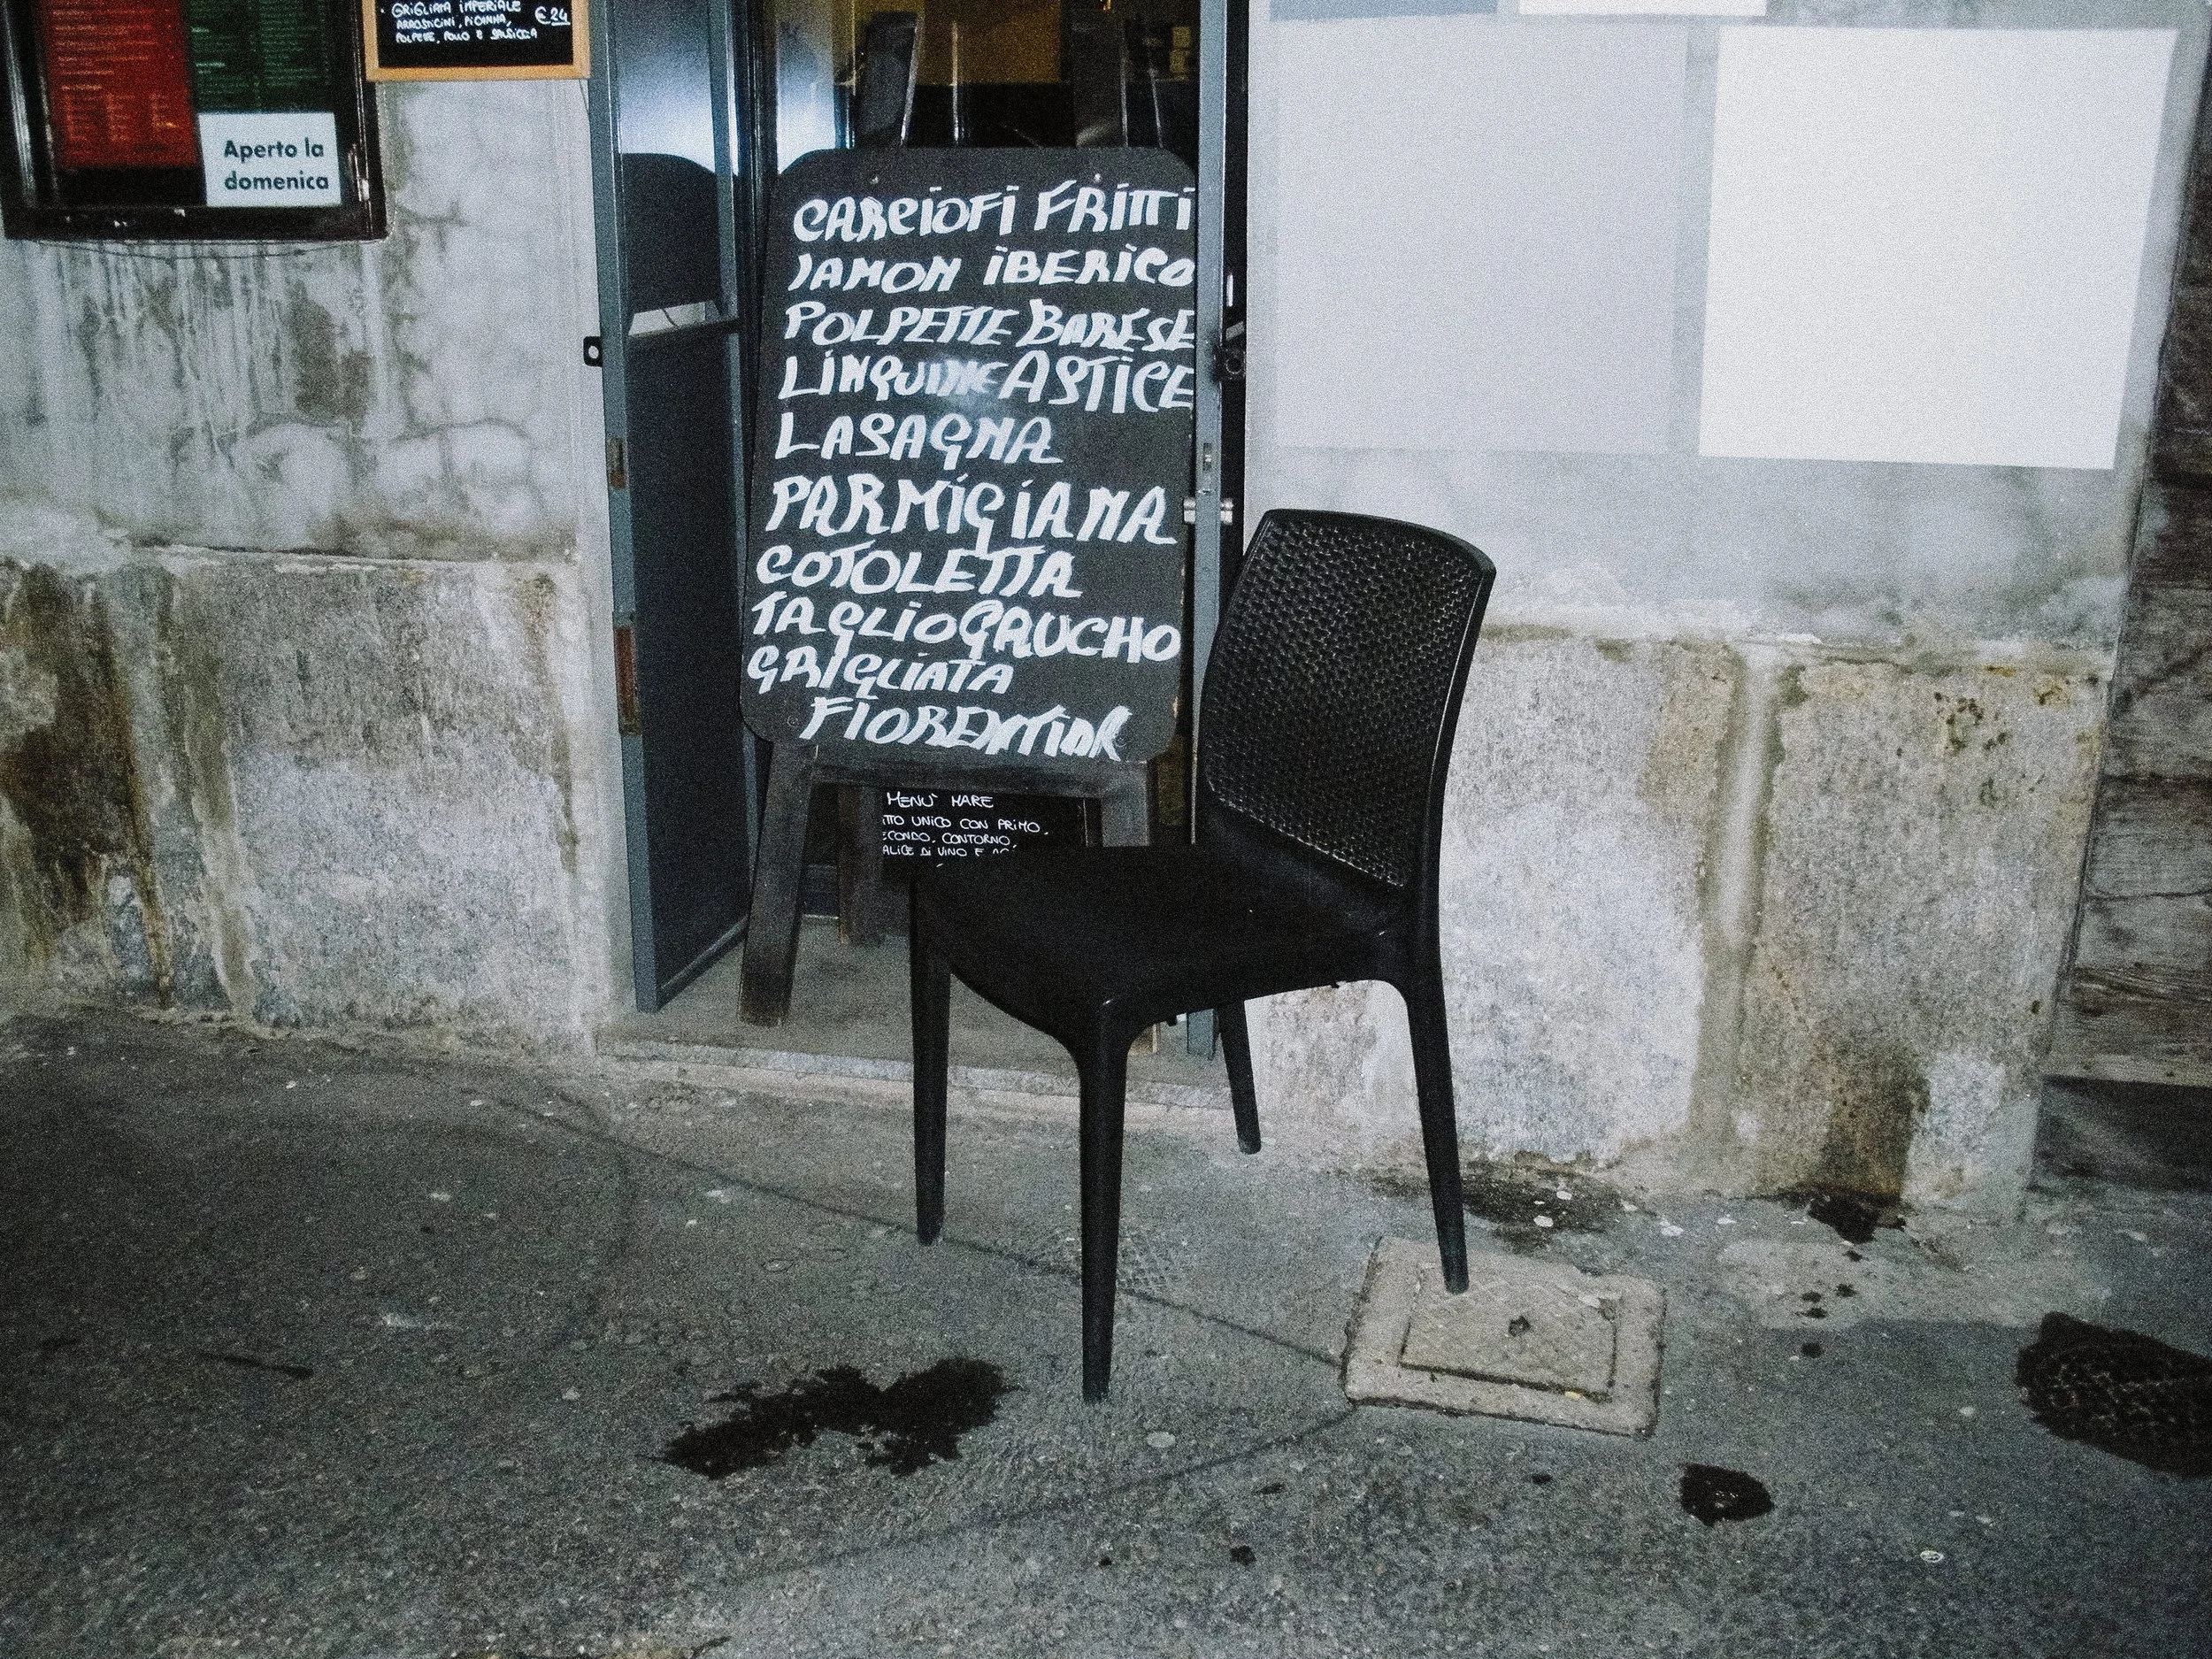 GRIGLIATA IMPERIALE
ARROSTICINI, PICANHA, € 24
POLPETTE, POLLO E SALSICCIA
Aperto la
domenica
CARCIOFI FRITTI
JAMON IBERICO
POLPETTE BARESE
LINQUINE ASTICE
LASAGNA
PARMIGIANA
COTOLETTA
TAGLIO GAUCHO
GRIGLIATA
FIORENTINA
MENU' MARE
TTO UNICO CON PRIMO,
ECONDO, CONTORNO,
ALICE DI VINO E